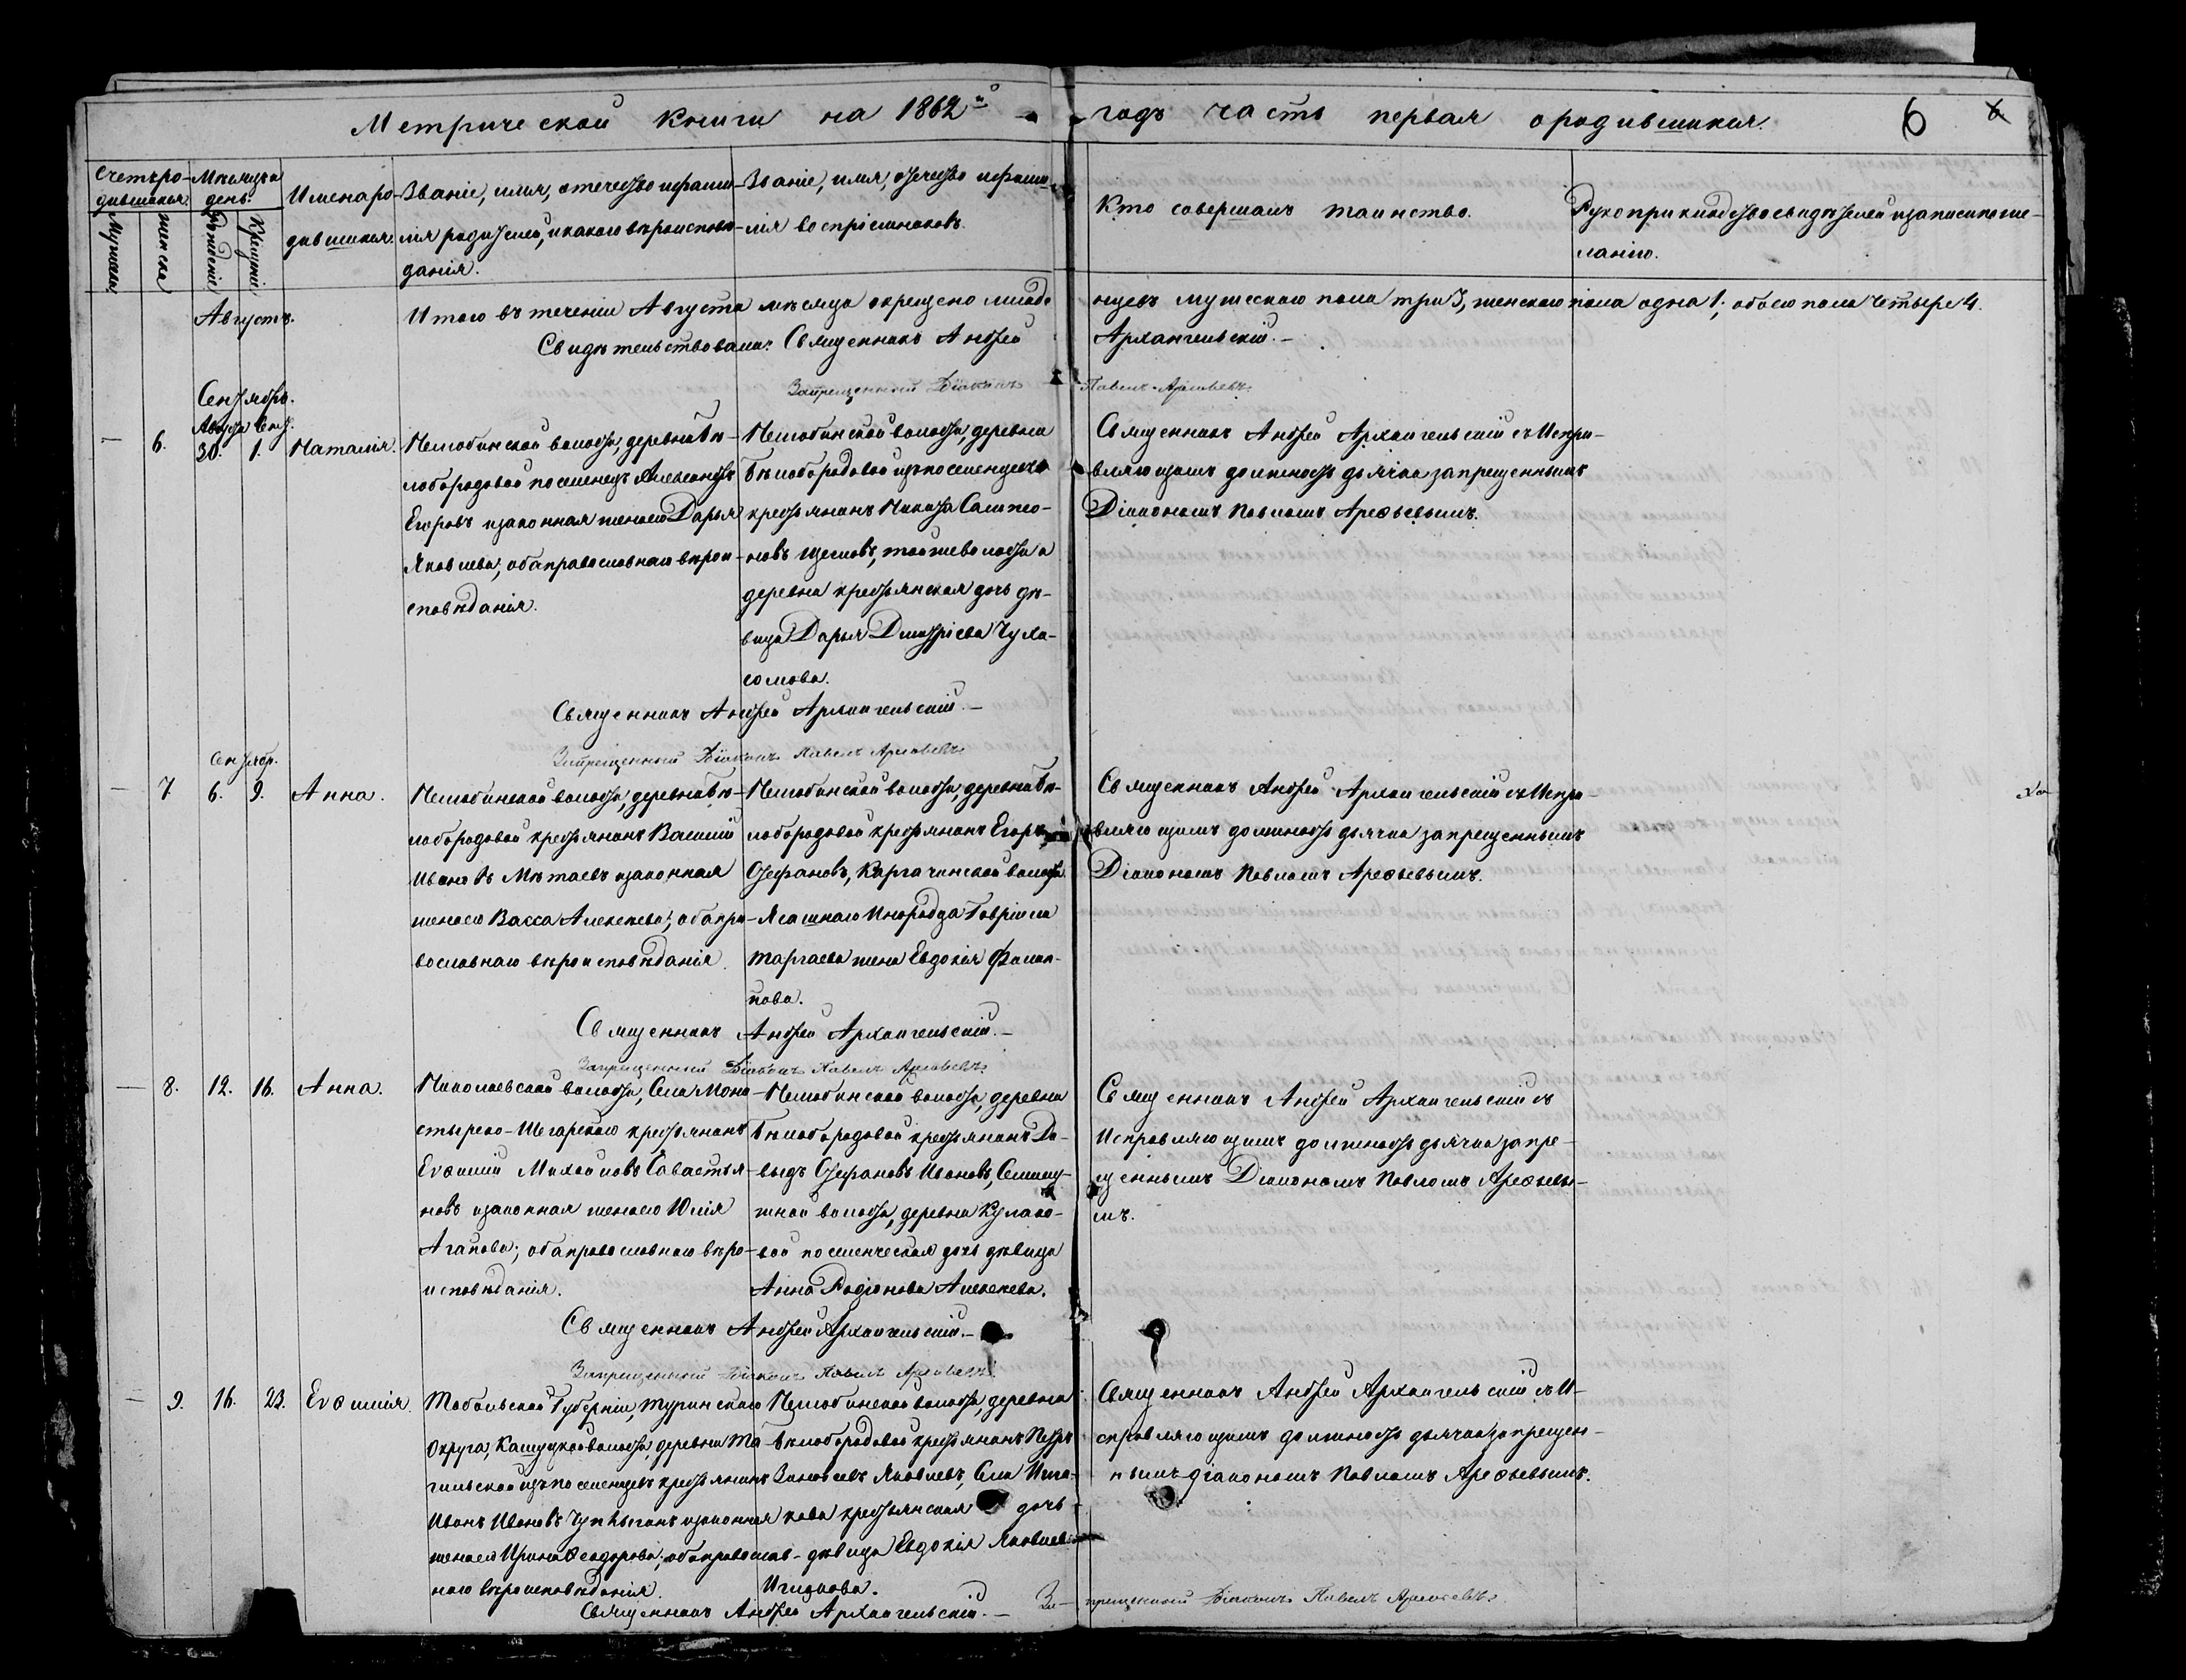 Метрической книги на 1862й годъ часть первая о родившихся. 6
Счетъ ро-
дившихся.
Мужеска.
женска
Мѣсяцъ и
день.
Рожденіе
Крещеніе
Имена ро-
дившихся.
Званіе, имя, отечество и фами-
лія родителей, и какого вѣроиспове-
данія.
Званіе, имя, отчество и фами-
лія воспріемниковъ.
Кто совершалъ таинство.
Рукоприкладство свидѣтелей и записи по же-
ланію.
Августъ.
Итого въ теченіи Августа мѣсяца окрещено младе
нцевъ мужескаго пола три 3, женскаго пола одна 1; обоего пола четыре 4.
Свидѣтельствовали: Священникъ Андрей Архангельскій.–
Запрещенный Діаконъ Павелъ Арефьевъ.
Сентябрь.
Августа Сент.
– 6. 30. 1. Наталія.
Нелюбинской волости, деревни Бѣ-
лобородовой поселенецъ Александръ
Егоровъ и законная жена его Дарья
Яковлева; оба православнаго вѣрои-
сповѣданія.
Нелюбинской волости, деревни
Бѣлобородовой изъ поселенцевъ
крестьянинъ Никита Сампсо-
новъ Щегловъ, той же волости и
деревни крестьянская дочь дѣ-
вица Дарья Дмитріева Чуха-
сомова.
Священникъ Андрей Архангельскій съ Испра-
вляющимъ должность дьячка запрещеннымъ
Діакономъ Павломъ Арефьевымъ.
Священникъ Андрей Архангельскій.–
Запрещенный Діаконъ Павелъ Арефьевъ.
Сентябр.
– 7. 6. 9. Анна.
Нелюбинской волости, деревни Бѣ-
лобородовой крестьянинъ Василій
Ивановъ Мѣтаевъ и законная
жена его Васса Алексѣева; оба пра-
вославнаго вѣроисповѣданія.
Нелюбинской волости, деревни Бѣ-
лобородовой крестьянинъ Егоръ
Стефановъ, Каргачинской волости
Ясашнаго Инородца Гавріила
Таргаева жена Евдокія Филип-
пова.
Священникъ Андрей Архангельскій съ Испра-
вляющимъ должность дьячка запрещеннымъ
Діакономъ Павломъ Арефьевымъ.
Священникъ Андрей Архангельскій.–
Запрещенный Діаконъ Павелъ Арефьевъ.
– 8. 12. 16. Анна.
Николаевской волости, Села Мона-
стырско-Шегарскаго крестьянинъ
Евѳимій Михайловъ Савастья-
новъ и законная жена его Юлія
Агапова; оба православнаго вѣро-
исповѣданія.
Нелюбинской волости, деревни
Бѣлобородовой крестьянинъ Да-
выдъ Стефановъ Ивановъ, Семилу-
жной волости, деревни Кулако-
вой поселенческая дочь дѣвица
Анна Родіонова Алексѣева.
Священникъ Андрей Архангельскій съ
Исправляющимъ должность дьячка запре-
щеннымъ Діакономъ Павломъ Арефьевы-
мъ.
Священникъ Андрей Архангельскій.–
Запрещенный Діаконъ Павелъ Арефьевъ.
– 9. 16. 23. Евѳимія.
Тобольской Губерніи, Туринскаго
Округа, Кашуцкой волости, деревни Та-
гильской изъ поселенцевъ крестьянинъ
Иванъ Ивановъ и законная
жена его Ирина Ѳеодорова; оба православ-
наго вѣроисповѣданія.
Нелюбинской волости, деревни
Бѣлобородовой крестьянинъ Петръ
Зиновьевъ Яковлевъ, Села Игла-
кова крестьянская дочь
дѣвица Евдокія Яковлева
Иглакова.
Священникъ Андрей Архангельскій съ И-
справляющимъ должность дьячка запрещен-
нымъ діакономъ Павломъ Арефьевымъ.
Священникъ Андрей Архангельскій.–
Запрещенный Діаконъ Павелъ Арефьевъ.